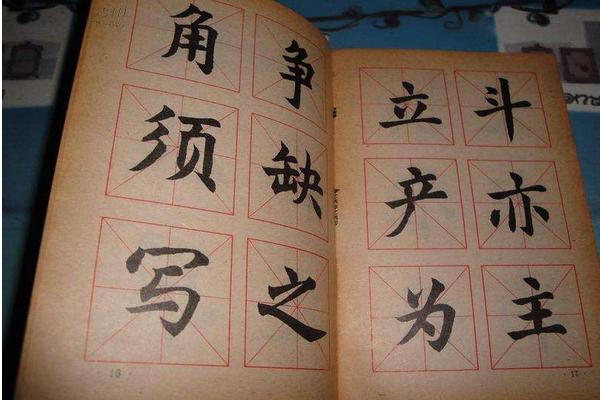 角争
须缺
写之
16
立斗
产亦
为主
17